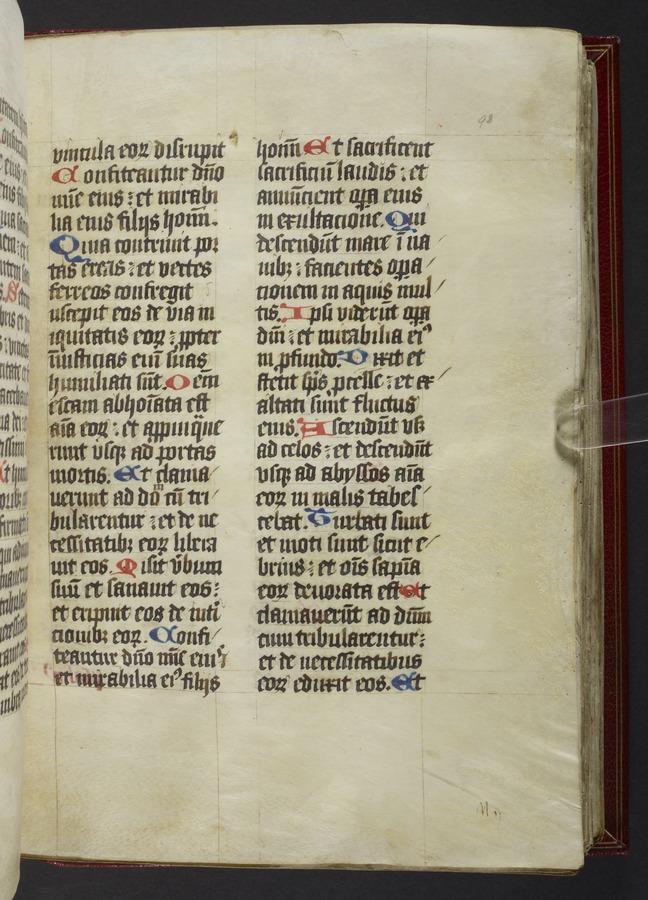 98
vincula eoꝝ disrupit
Confiteantur dño
mie eius : et mirabi
lia eius filijs hoim̄.
Quia contriuit por
tas ereas : et vectes
ferreos confregit
uscepit eos de via in
iquitatis eoꝝ : ꝓpter
iniusticias eni suas
humiliati sūt. Oem
escam abhoīata est
aīa eoꝝ : et appinq̄ue
runt vsqꝫ ad portas
mortis. Et clama
uerunt ad dōm cū tri
bularentur : et de ne
cessitatibꝫ eoꝝ libera
uit eos. Misit v̄bum
suū et sanauit eos :
et eripuit eos de īuti
cionibꝫ eoꝝ. Confi
teantur dño mīe eiꝰ
et mirabilia eiꝰ filijs
hoim̄ Et sacrificent
sacrificiū laudis : et
annūcient oꝑa eius
in exultacione. Qui
descendūt mare ī na
uibꝫ : facientes oꝑa
cionem in aquis mul
tis. Ipsi viderūt oꝑa
dn̄i : et mirabilia eiꝰ
in ꝓfundo. Dixit et
stetit sp̄s ꝓcelle : et ex
altati sunt fluctus
eius. Ascendūt vsꝫ
ad celos : et descendūt
vsqꝫ ad abyssos aīa
eoꝝ in malis tabes
cebat. Turbati sunt
et moti sunt sicut e
brius : et oīs sapīa
eoꝝ deuorata est Et
clamauerūt ad dn̄m
cum tribularentur :
et de necessitatibus
eoꝝ eduxit eos. Et